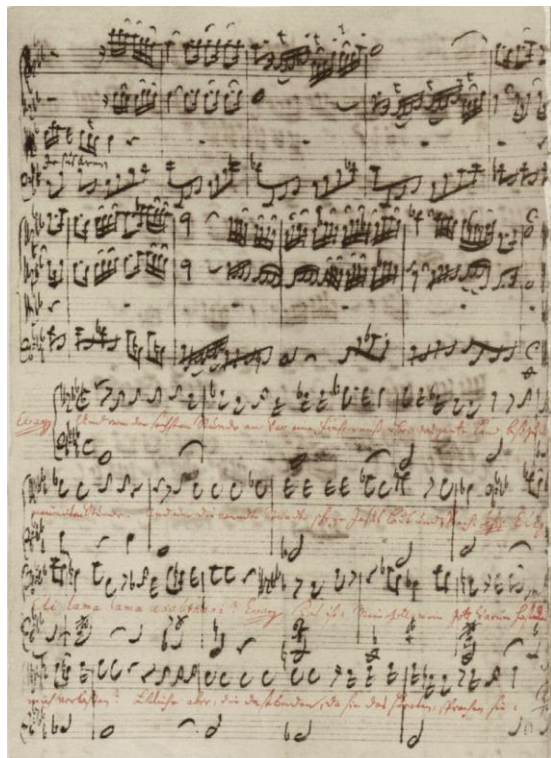 Evang
Und von der sechsten Stunde an war eine Finsterniß über das gantze Land, biß zu der
neundten Stunde. Und um die neundte Stunde schrye Jesus laut und sprach Eli, Eli,
lama lama asabthani? Evang Das ist: Mein Gott, mein Gott, warum hast du
mich verlaßen? Etliche aber, die da stunden, da sie das höreten, sprachen sie: